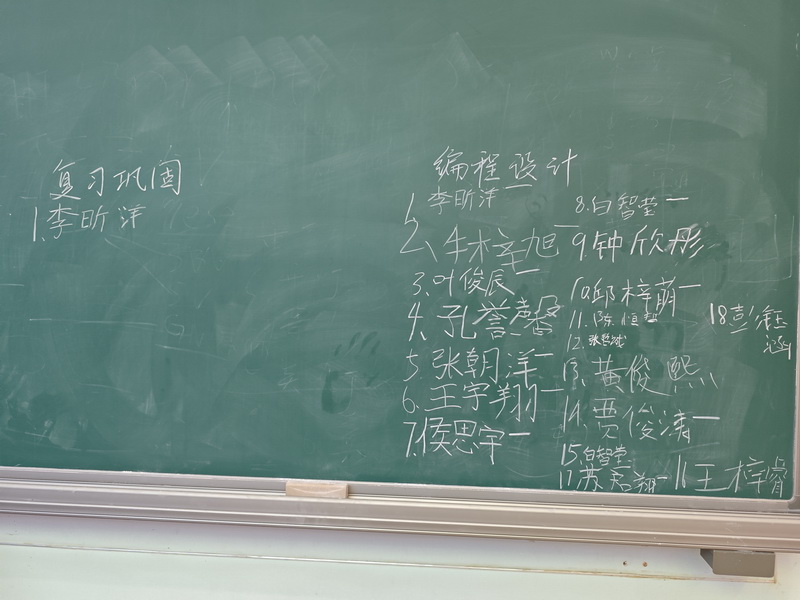 复习巩固
1.李昕洋
编程设计
1.李昕洋
2.牛梓旭
3.叶俊辰一
4.孔誉馨
5.张朝洋一
6.王宇翔一
7.侯思宇一
8.白智莹一
9.钟欣彤
10.邱梓萌一
11.陈恒
12.张哲斌
13.黄俊熙
14.贾俊涛一
15.白智莹
17.苏君翔一
16王梓
18彭钰涵